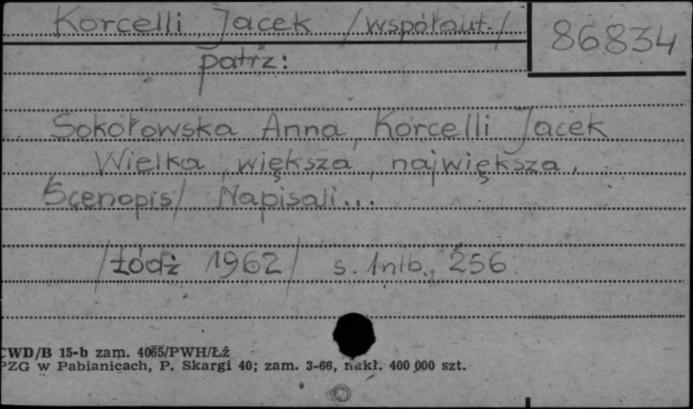 Korcelli Jacek /współaut./
86834
patrz:
Sokołowska Anna, Korcelli Jacek
Wielka, większa, największa.
/Scenopis/ Napisali...
/Łódź 1962/ s. 1nlb., 256
CWD/B 15-b zam. 4065/PWH/Łź
PZG w Pabianicach, P. Skargi 40; zam. 3-66, nakł. 400 000 szt.